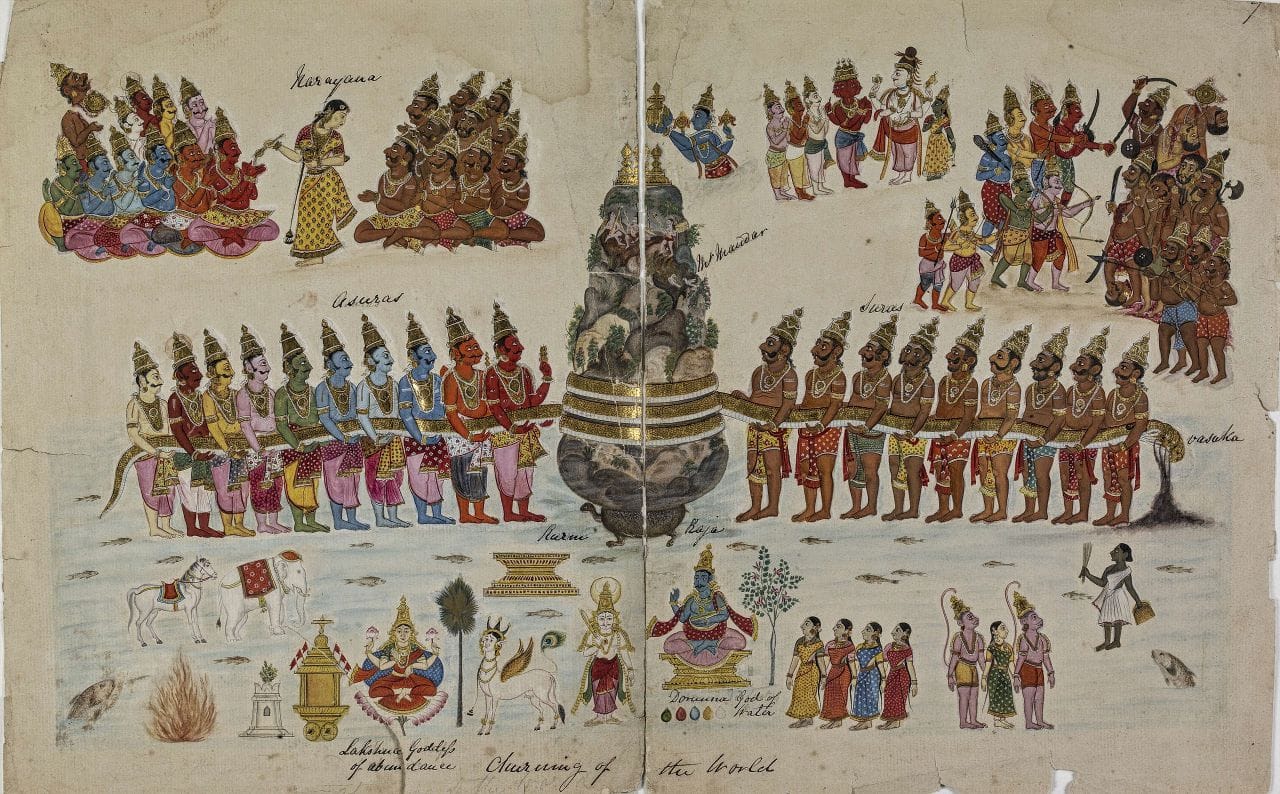 7
Narayana
Mt Mandar
Asuras
Suras
Vasuka
Kurmi Raja
Lakshmi Goddess
of abundance
Dorunna God of
Water
Churning of the World